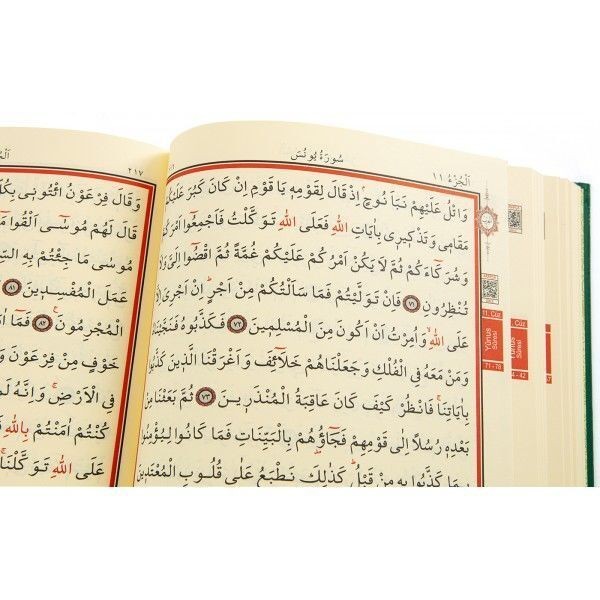 اَلْجُزْءُ ١١ سُورَةُ يُونُسَ
وَاتْلُ عَلَيْهِمْ نَبَاَ نُوحٍۢ اِذْ قَالَ لِقَوْمِه۪ يَا قَوْمِ اِنْ كَانَ كَبُرَ عَلَيْكُمْ
مَقَام۪ي وَتَذْك۪ير۪ي بِاٰيَاتِ اللّٰهِ فَعَلَى اللّٰهِ تَوَكَّلْتُ فَاَجْمِعُٓوا اَمْرَكُمْ
وَشُرَكَٓاءَكُمْ ثُمَّ لَا يَكُنْ اَمْرُكُمْ عَلَيْكُمْ غُمَّةً ثُمَّ اقْضُٓوا اِلَيَّ وَلَا
تُنْظِرُونِ ﴿٧١﴾ فَاِنْ تَوَلَّيْتُمْ فَمَا سَاَلْتُكُمْ مِنْ اَجْرٍۜ اِنْ اَجْرِيَ اِلَّا
عَلَى اللّٰهِۙ وَاُمِرْتُ اَنْ اَكُونَ مِنَ الْمُسْلِم۪ينَ ﴿٧٢﴾ فَكَذَّبُوهُ فَنَجَّيْنَاهُ
وَمَنْ مَعَهُ فِي الْفُلْكِ وَجَعَلْنَاهُمْ خَلَٓائِفَ وَاَغْرَقْنَا الَّذ۪ينَ كَذَّبُوا
بِاٰيَاتِنَاۚ فَانْظُرْ كَيْفَ كَانَ عَاقِبَةُ الْمُنْذَر۪ينَ ﴿٧٣﴾ ثُمَّ بَعَثْنَا مِنْ
بَعْدِه۪ رُسُلًا اِلٰى قَوْمِهِمْ فَجَٓاؤُ۫هُمْ بِالْبَيِّنَاتِ فَمَا كَانُوا لِيُؤْمِنُوا
بِمَا كَذَّبُوا بِه۪ مِنْ قَبْلُۜ كَذٰلِكَ نَطْبَعُ عَلٰى قُلُوبِ الْمُعْتَد۪ينَ
11. Cüz
Yûnus
Sûresi
71 - 78
Cüz
Yûnus
Sûresi
4 - 42
٢١٧
وَقَالَ فِرْعَوْنُ ائْتُون۪ي بِكُلِّ
قَالَ لَهُمْ مُوسٰٓى اَلْقُوا مَٓا
مُوسٰى مَا جِئْتُمْ بِهِ
عَمَلَ الْمُفْسِد۪ينَ ﴿٨١﴾
الْمُجْرِمُونَ ﴿٨٢﴾ فَمَٓا
خَوْفٍ مِنْ فِرْعَوْنَ
فِي الْاَرْضِۚ وَاِنَّهُ
كُنْتُمْ اٰمَنْتُمْ بِاللّٰهِ
عَلَى اللّٰهِ تَوَكَّلْنَاۚ